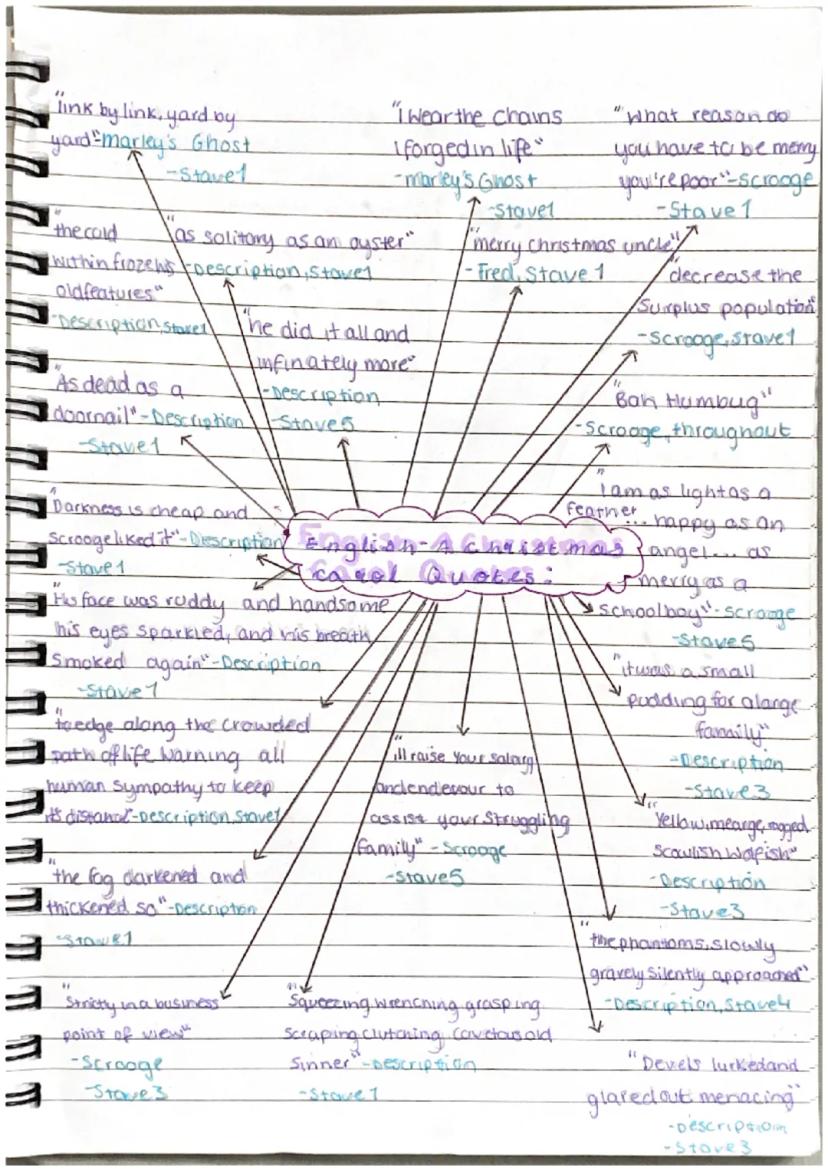 English-A Christmas
Carol Quotes:
"link by link, yard by
yard"-marley's Ghost
-Stave1
"I wear the chains
I forged in life"
-marley's Ghost
-Stave1
"What reason do
you have to be merry
you're poor"-scrooge
-Stave 1
"the cold
within froze his
old features"
-Description, Stave1
"as solitary as an oyster"
-Description, Stave1
"merry christmas uncle"
-Fred, Stave 1
"decrease the
surplus population"
-Scrooge, Stave1
"he did it all and
infinately more"
-Description
-Stave5
"As dead as a
doornail"-Description
-Stave1
"Bah Humbug"
-Scrooge, throughout
"I am as light as a
feather... happy as an
angel... as
merry as a
schoolboy"-scrooge
-Stave5
"Darkness is cheap and
scrooge liked it"-Description
-Stave1
"His face was ruddy and handsome
his eyes sparkled, and his breath
smoked again"-Description
-Stave1
"it was a small
pudding for a large
family"
-Description
-Stave3
"to edge along the crowded
path of life warning all
human sympathy to keep
its distance"-Description, Stave1
"ill raise your salary
and endevour to
assist your struggling
family" -Scrooge
-Stave5
"Yellow, meange, ragged,
Scowlish Wolfish"
-Description
-Stave3
"the fog darkened and
thickened so"-Description
-Stave1
"the phantoms, slowly
gravely silently approached"
-Description, Stave4
"Strictly in a business
point of view"
-Scrooge
-Stave3
"Squeezing wrenching grasping
scraping clutching covetous old
sinner"-Description
-Stave1
"Devels lurked and
glared out menacing"
-Description
-Stave3